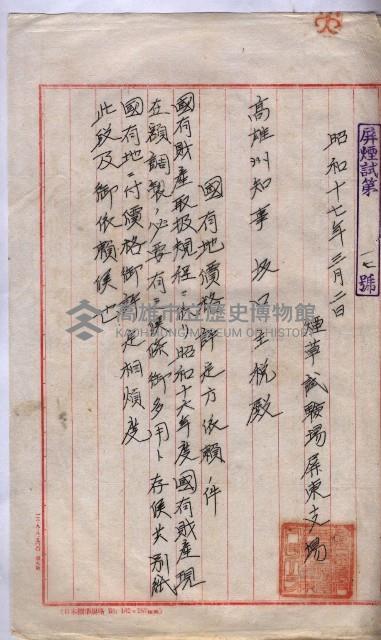 屏煙試第 七號
昭和十七年三月二日
煙草試驗場屏東支場
高雄州知事 坂口主税殿
國有地價格評定方依賴ノ件
國有財產取扱規程ニ依ル昭和十六年度國有財產現
在額調製ノ必要有之候條御多用ト存候共別紙
國有地ニ付價格御評定相煩度
此段及御依賴候也
高雄市立歷史博物館
KAOHSIUNG MUSEUM OF HISTORY